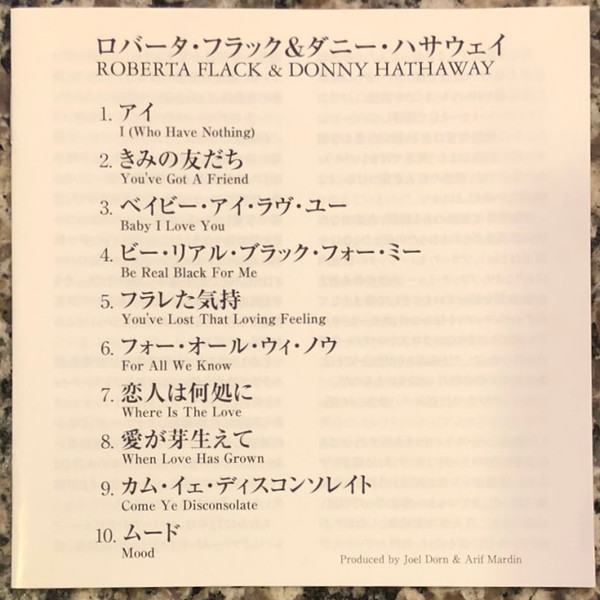 ロバータ・フラック&ダニー・ハサウェイ
ROBERTA FLACK & DONNY HATHAWAY
1. アイ
I (Who Have Nothing)
2. きみの友だち
You've Got A Friend
3. ベイビー・アイ・ラヴ・ユー
Baby I Love You
4. ビー・リアル・ブラック・フォー・ミー
Be Real Black For Me
5. フラレた気持
You've Lost That Loving Feeling
6. フォー・オール・ウィ・ノウ
For All We Know
7. 恋人は何処に
Where Is The Love
8. 愛が芽生えて
When Love Has Grown
9. カム・イェ・ディスコンソレイト
Come Ye Disconsolate
10. ムード
Mood
Produced by Joel Dorn & Arif Mardin